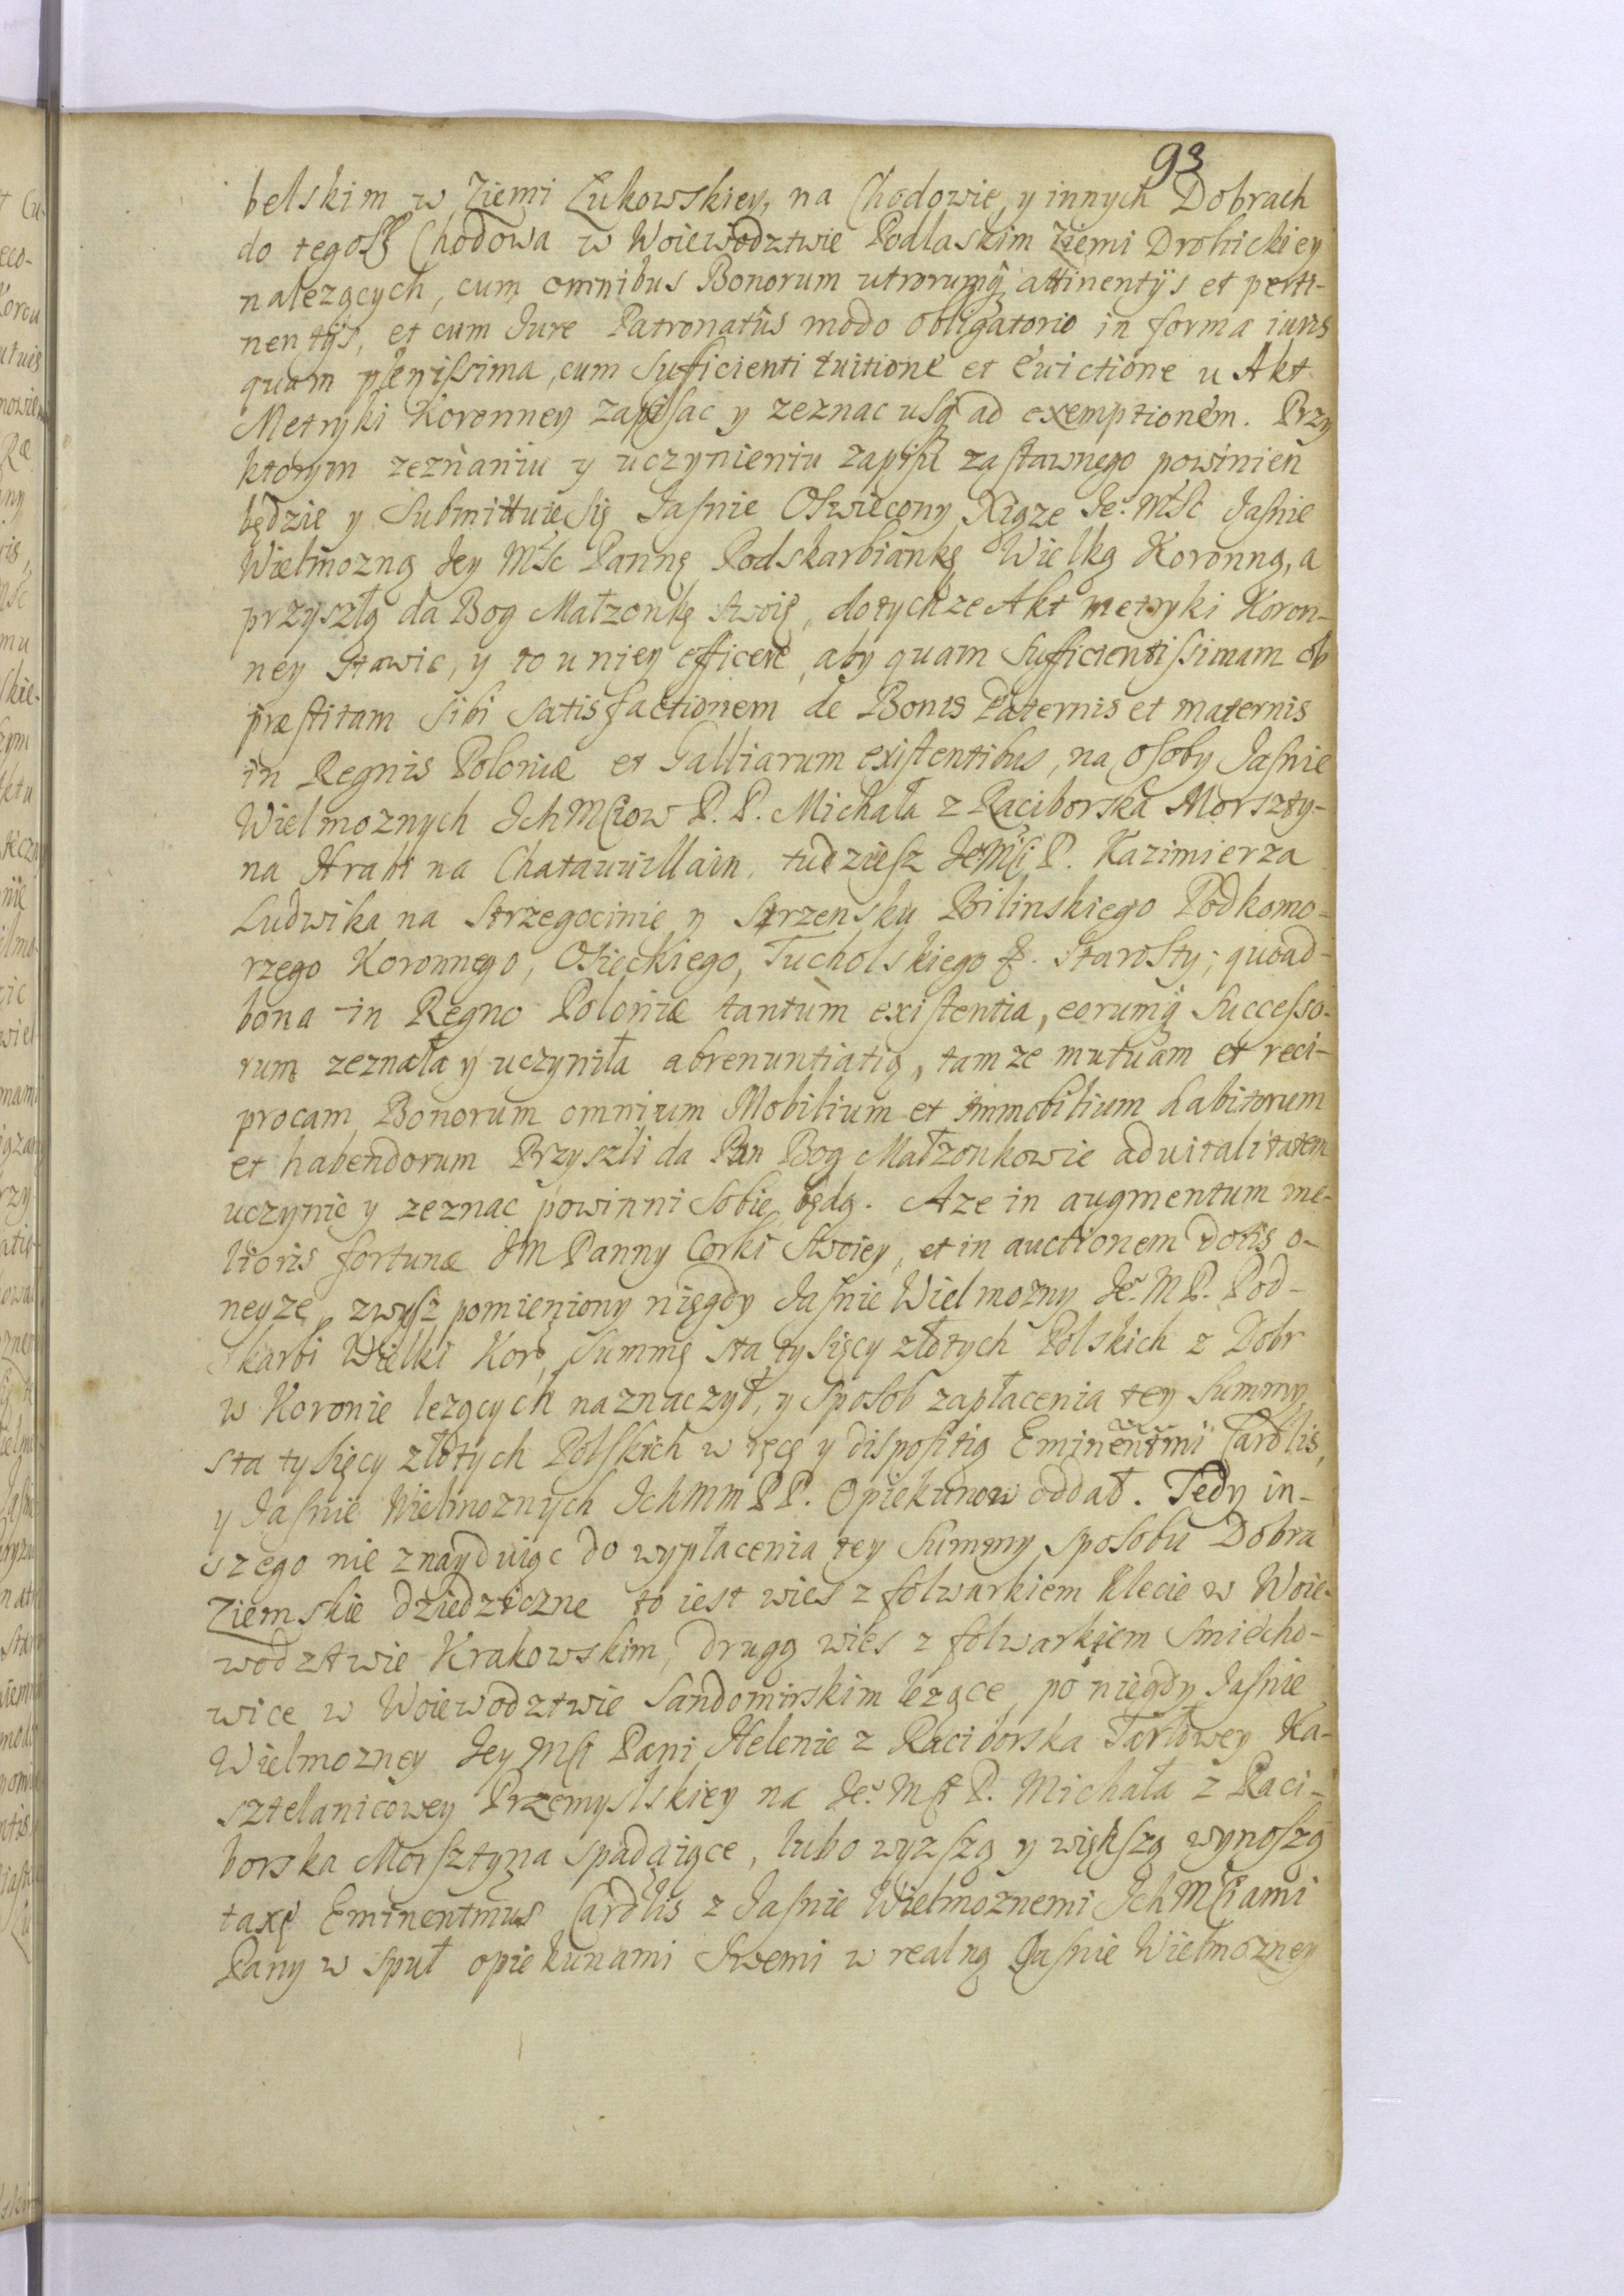 93
belskim w Ziemi Łukowskiey, na Chodowie, y innych Dobrach
do tegosz Chodowa w Woiewodztwie Podlaskim Ziemi Drohickiey
nalezących, cum omnibus Bonorum utrorumq attinentÿs et perti-
nentÿs, et cum Jure Patronatûs modo obligatorio in forma iuris
quam plenissima, cum sufficienti tuitione et evictione u Akt
Metryki Koronney zapisac y zeznac usq ad exemptionem. Przy
ktorym zeznaniu y uczynieniu zapisu zastawnego powinien
będzie y submittuie się Jasnie Oswiecony Xiąze Je. Msc Jasnie
Wielmozną Jey Msc Pannę Podskarbiankę Wielką Koronną, a
przyszłą da Bog Małzonkę swoię, do tychze Akt metryki Koron-
ney stawic, y to u niey efficere, aby quam sufficientissimam ob
præstitam sibi satisfactionem de Bonis Paternis et maternis
in Regnis Poloniæ et Galliarum existentibus, na osoby Jasnie
Wielmoznych Ich Mciow P. P. Michała z Raciborska Morszty-
na Hrabi na Chatauuillain, tudziesz Je Mci P. Kazimierza
Ludwika na Strzegocinie y Strzensku Bilinskiego Podkomo-
rzego Koronnego, Osieckiego, Tucholskiego &. Starosty; quoad
bona in Regno Poloniæ tantùm existentia, eorumq Successo-
rum zeznała y uczyniła abrenuntiatią, tamze mutuam et reci-
procam Bonorum omnium Mobilium et immobilium habitorum
et habendorum Przyszli da Pan Bog Małzonkowie aduitalitatem
uczynic y zeznac powinni sobie będą. A ze in augmentum me-
lioris fortunæ JM Panny Corki swoiey, et in auctionem dotis o-
neyze, zwysz pomieniony nięgdy Jasnie Wielmozny Je. M P. Pod-
skarbi Wielki Kor, Summę sta tysięcy złotych Polskich z Dobr
w Koronie lezących naznaczył, y sposob zapłacenia tey Summy
sta tysięcy złotych Polskich w ręcę y dispositią Eminentmi Cardlis,
y Jasnie Wielmoznych Ich mm PP. Opiekunow oddał. Tedy in-
szego nie znayduiąc do wypłacenia tey Summy sposobu Dobra
Ziemskie dziedziczne to iest wies z folwarkiem Klecie w Woie-
wodztwie Krakowskim, drugą wies z folwarkiem Smiecho-
wice w Woiewodztwie Sandomirskim lezące, po niegdy Jasnie
Wielmozney Jey Mci Pani Helenie z Raciborska Tarłowey Ka-
sztelanicowey Przemyslskiey na Je. Mci P. Michała z Raci-
borska Morsztyna spadaiące, lubo wyzszą y większą wynoszą
taxę Eminentmus Cardlis z Jasnie Wielmoznemi Ich Mciami
Pany w społ opiekunami swemi w realną Jasnie Wielmozney